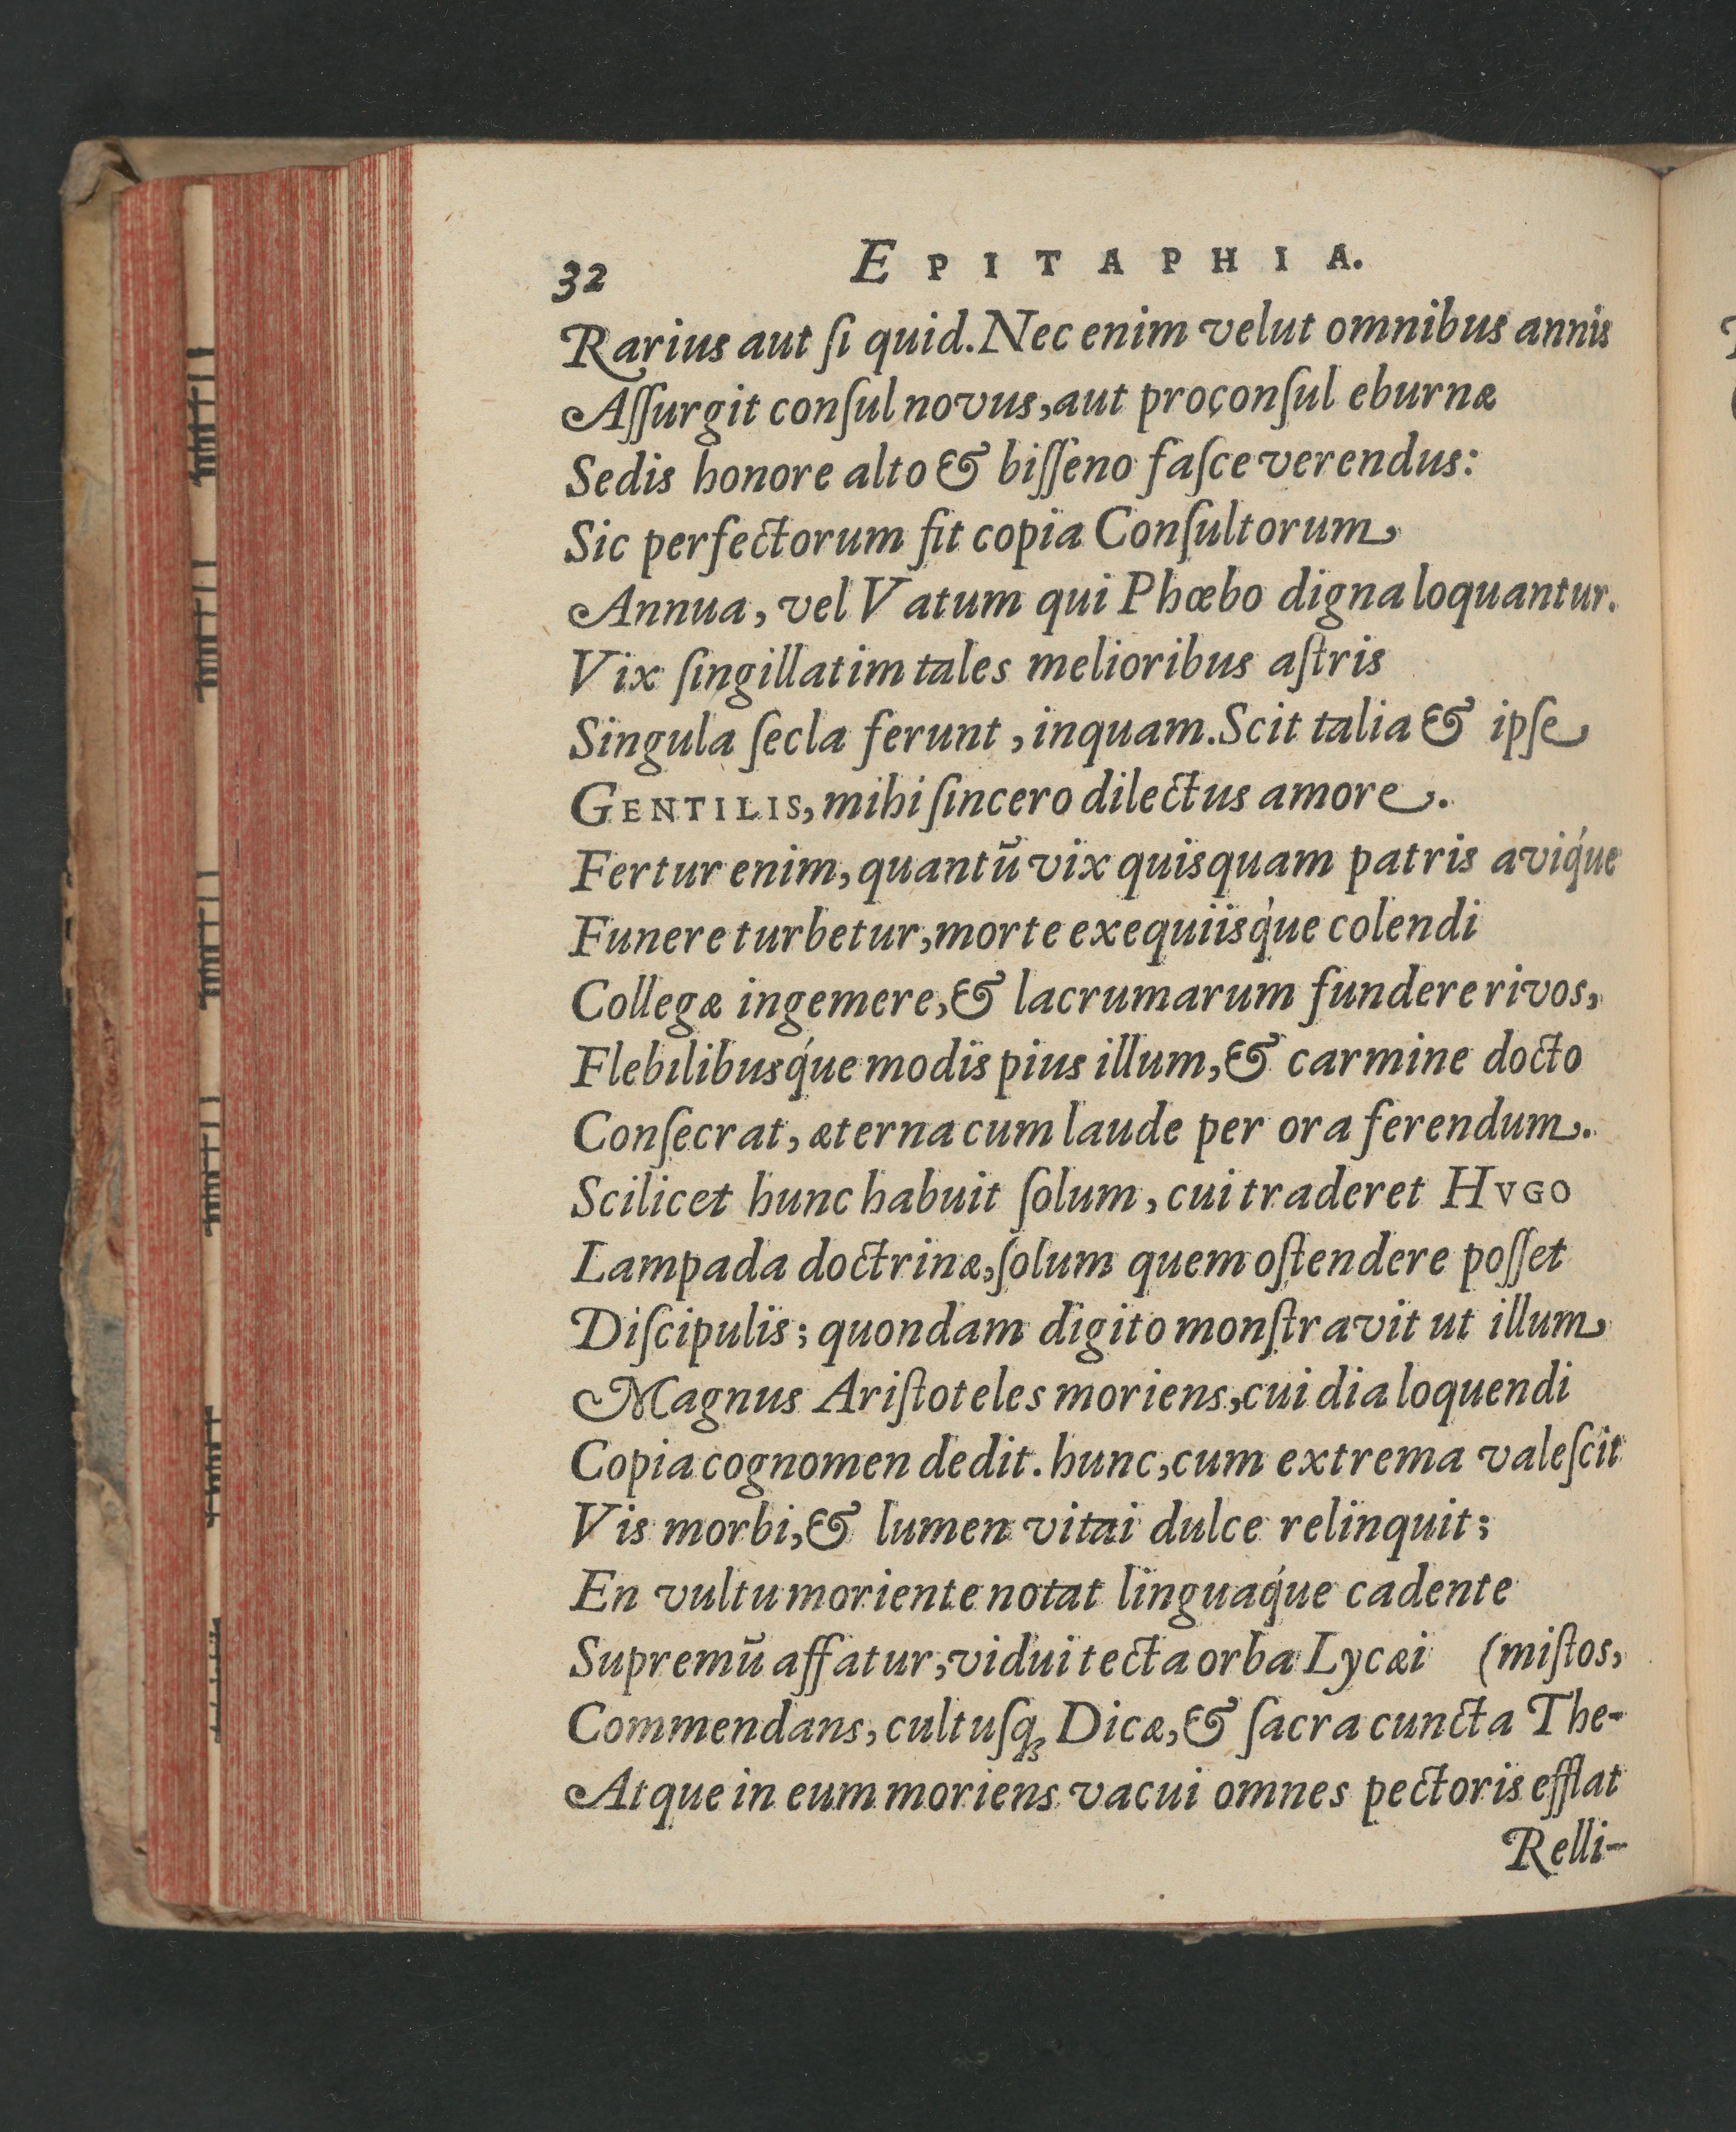 32 EPITAPHIA.
Rarius aut ſi quid. Nec enim velut omnibus annis
Aſſurgit conſul novus, aut proçonſul eburnæ
Sedis honore alto & biſſeno faſce verendus:
Sic perfectorum fit copia Conſultorum
Annua, vel Vatum qui Phœbo digna loquantur.
Vix ſingillatim tales melioribus aſtris
Singula ſecla ferunt, inquam. Scit talia & ipſe
GENTILIS, mihi ſincero dilectus amore.
Fertur enim, quantũ vix quisquam patris aviq́ue
Funere turbetur, morte exequiisq́ue colendi
Collegæ ingemere, & lacrumarum fundere rivos,
Flebilibusq́ue modis pius illum, & carmine docto
Conſecrat, æterna cum laude per ora ferendum.
Scilicet hunc habuit ſolum, cui traderet HVGO
Lampada doctrinæ, ſolum quem oſtendere poſſet
Diſcipulis; quondam digito monſtravit ut illum
Magnus Ariſtoteles moriens, cui dia loquendi
Copia cognomen dedit. hunc, cum extrema valeſcit
Vis morbi, & lumen vitai dulce relinquit;
En vultu moriente notat linguaq́ue cadente
Supremũ affatur, vidui tecta orba Lycæi (miſtos,
Commendans, cultuſq; Dicæ, & ſacra cuncta The-
Atque in eum moriens vacui omnes pectoris efflat
Relli-